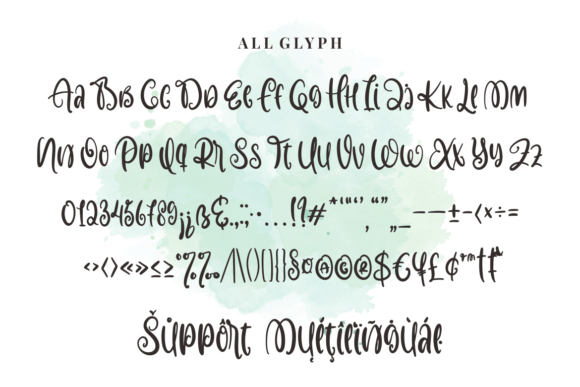 ALL GLYPH
Aa Bb Cc Dd Ee Ff Gg Hh Ii Jj Kk Ll Mm
Nn Oo Pp Qq Rr Ss Tt Uu Vv Ww Xx Yy Zz
0123456789¡¿ß&.,:;·..…!?#*"'“‘’ “” , „_—–±-<×÷=
‹›()«»≤≥°%‰/|\(){}[]§¤@©®$€¥£¢ªᵐ†‡
Šüppôrt Mųĺțîlïñğùáĕ